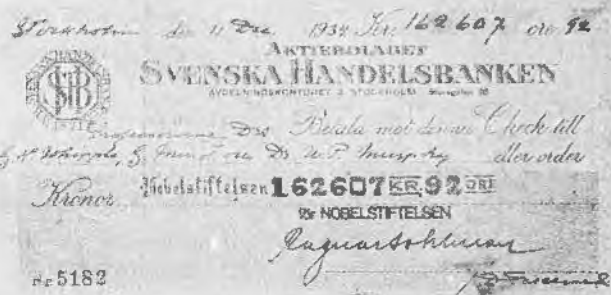 Stockholm den 11 Dec. 1934 Kr: 162607 öre 92
AKTIEBOLAGET
SVENSKA HANDELSBANKEN
AVDELNINGSKONTORET STOCKHOLM
SHB
Professorerna Drs Betala mot denna Check till
G. Minot Dr W.P. Murphy eller order
Kronor Nobelstiftelsen 162607 KR. 92 ÖRE
För NOBELSTIFTELSEN
Ragnar Sohlman
No 5182